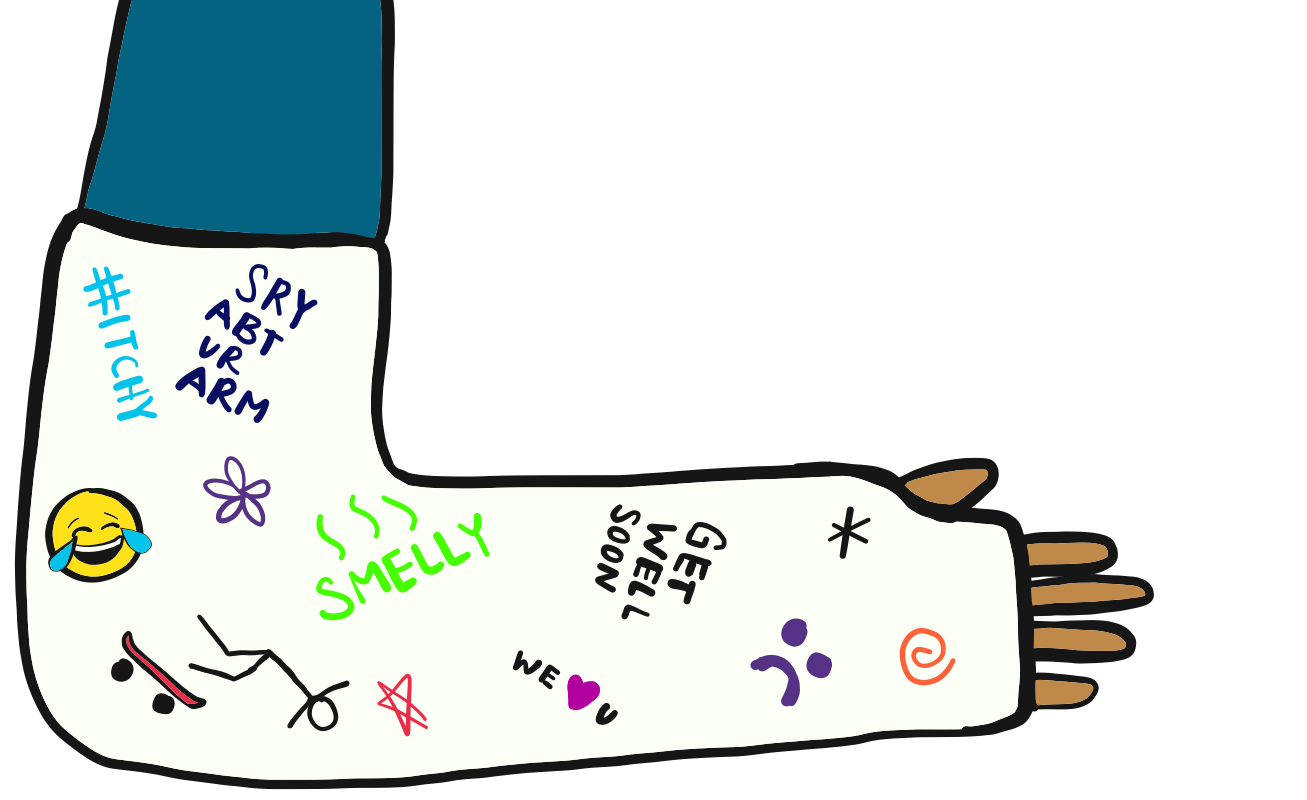 #ITCHY
SRY
ABT
UR
ARM
SMELLY
GET
WELL
SOON
WE
U